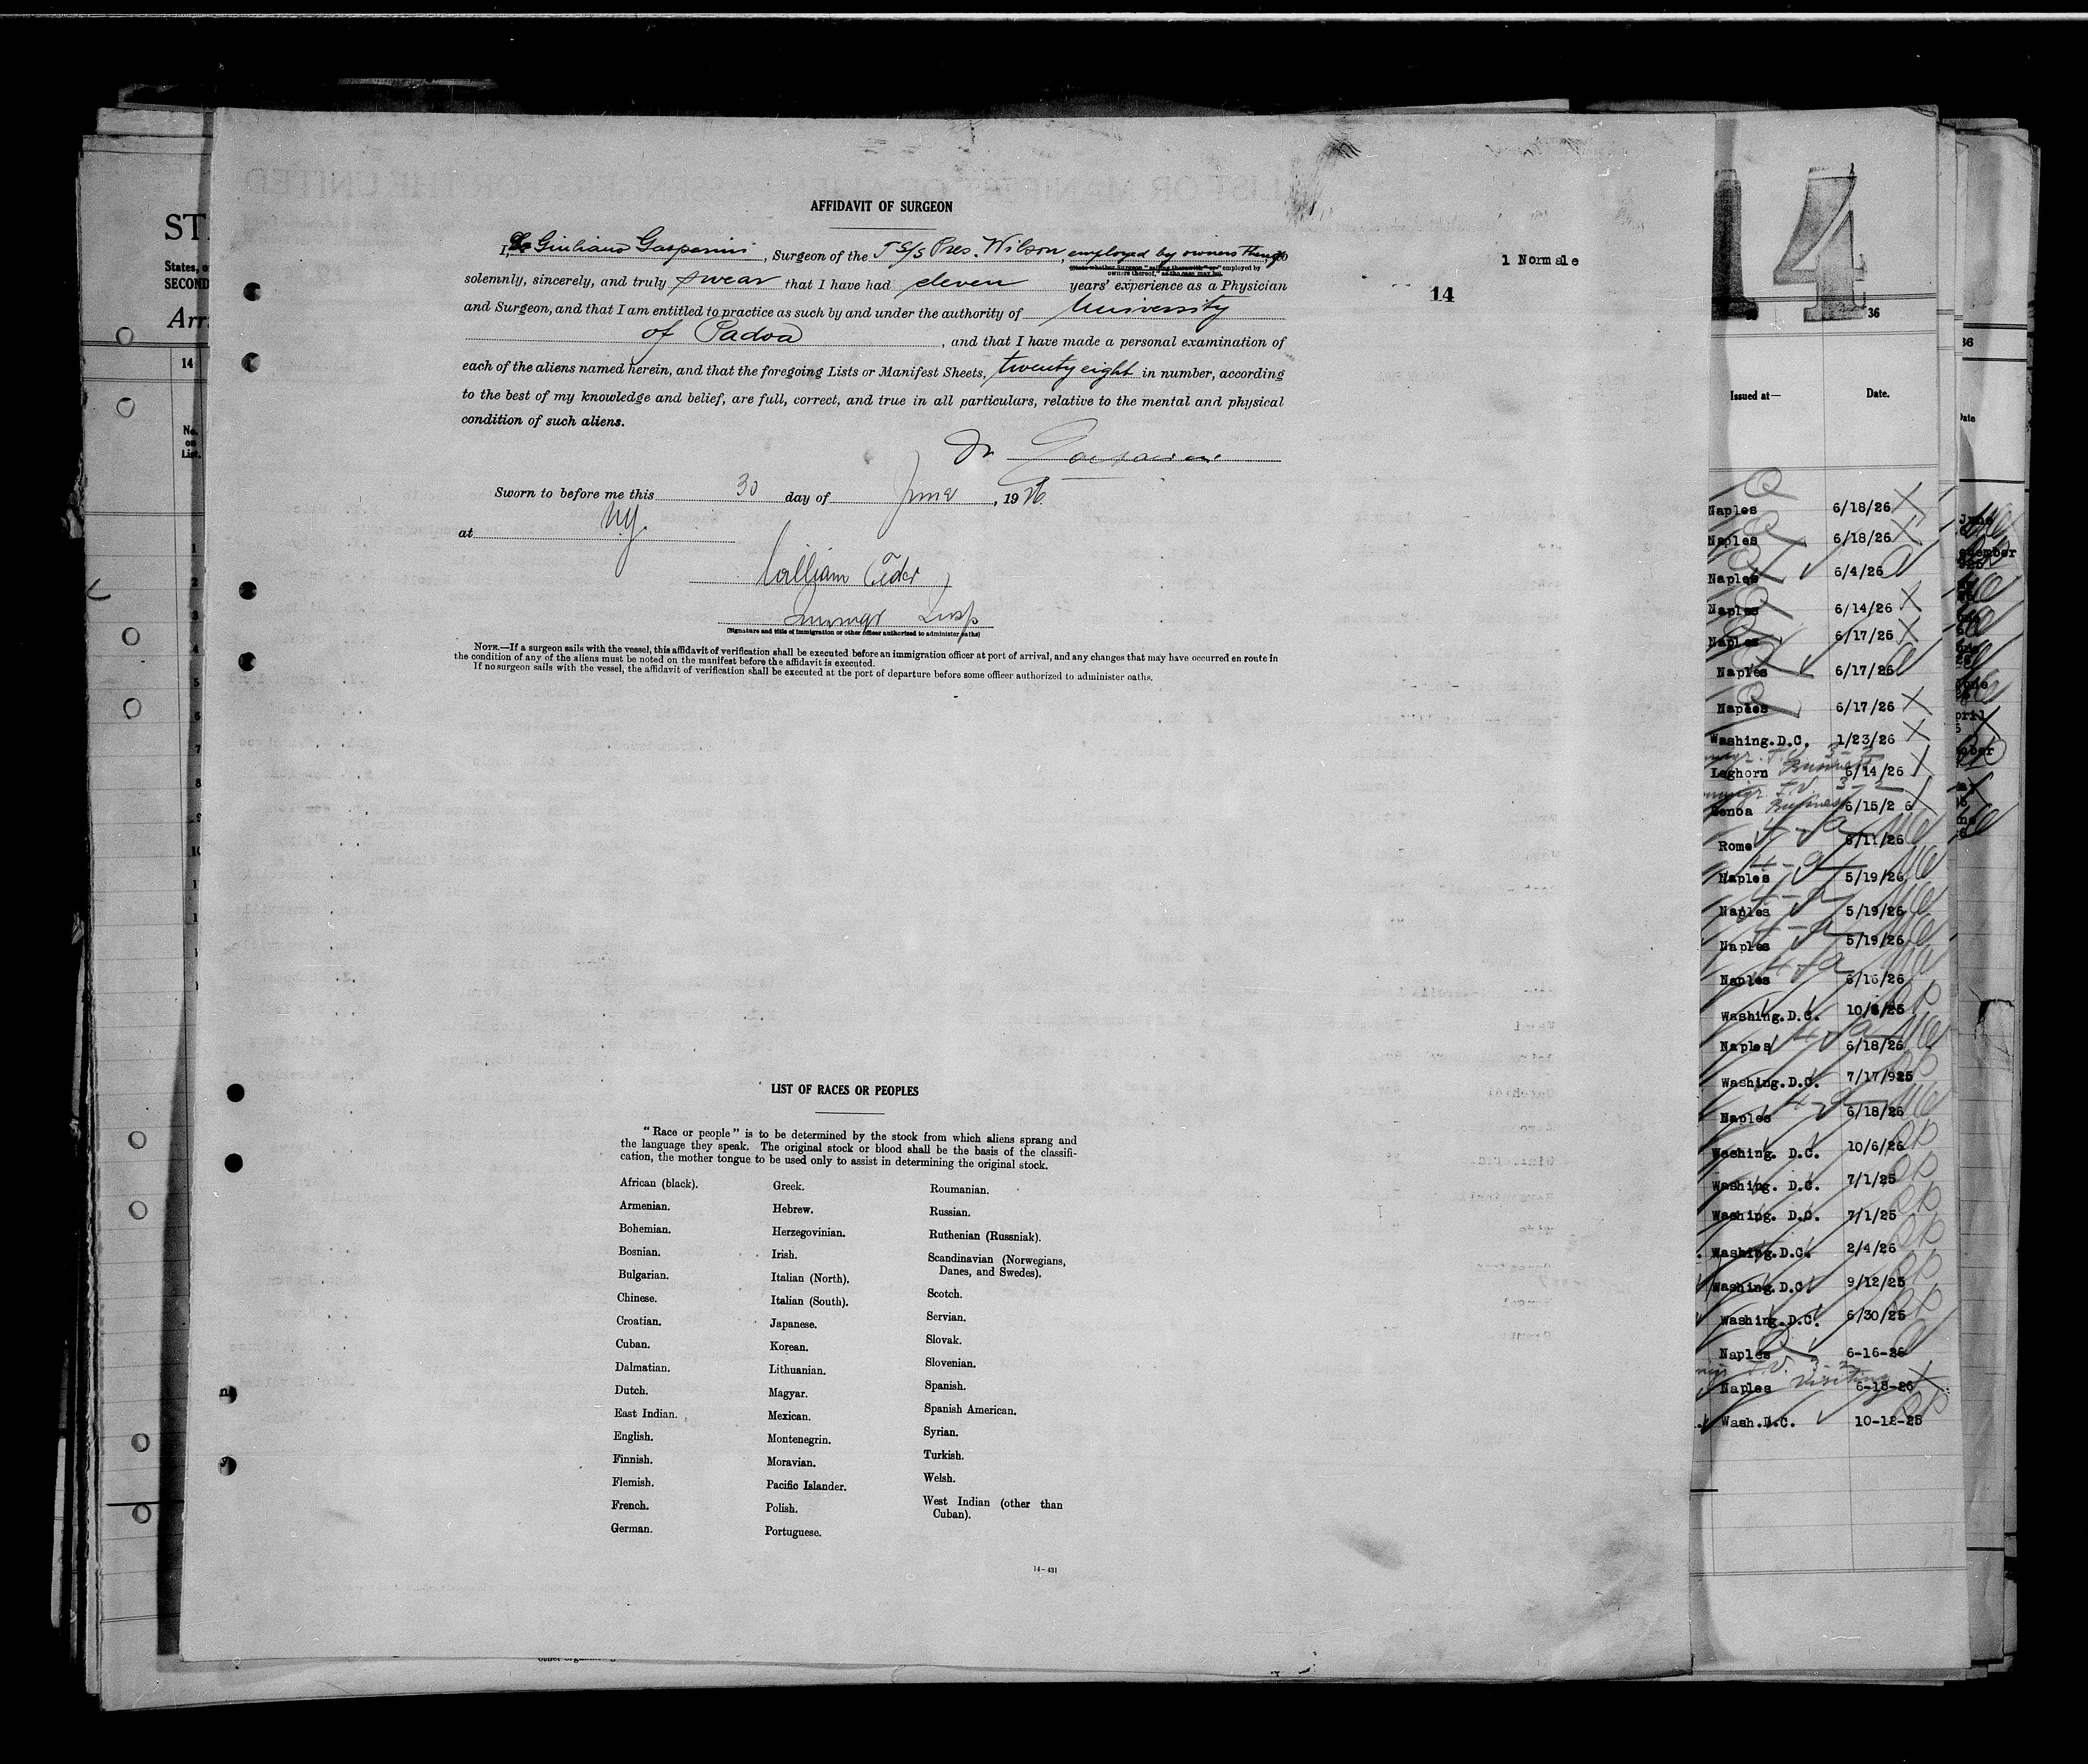 AFFIDAVIT OF SURGEON
I, Dr Giuliano Gasparini, Surgeon of the T S/S Pres. Wilson, employed by owners thereof, do
(State whether Surgeon "sailing therewith" or "employed by owners thereof," as the case may be)
solemnly, sincerely, and truly swear that I have had eleven years' experience as a Physician
and Surgeon, and that I am entitled to practice as such by and under the authority of University
of Padova, and that I have made a personal examination of
each of the aliens named herein, and that the foregoing Lists or Manifest Sheets, twenty eight in number, according
to the best of my knowledge and belief, are full, correct, and true in all particulars, relative to the mental and physical
condition of such aliens.
Dr Gasparini
Sworn to before me this 30 day of June, 1926.
at NY.
William
Immgr Insp
(Signature and title of immigration or other officer authorized to administer oaths)
NOTE.—If a surgeon sails with the vessel, this affidavit of verification shall be executed before an immigration officer at port of arrival, and any changes that may have occurred en route in
the condition of any of the aliens must be noted on the manifest before the affidavit is executed.
If no surgeon sails with the vessel, the affidavit of verification shall be executed at the port of departure before some officer authorized to administer oaths.
1 Normale
14
LIST OF RACES OR PEOPLES
"Race or people" is to be determined by the stock from which aliens sprang and
the language they speak. The original stock or blood shall be the basis of the classifi-
cation, the mother tongue to be used only to assist in determining the original stock.
African (black).
Armenian.
Bohemian.
Bosnian.
Bulgarian.
Chinese.
Croatian.
Cuban.
Dalmatian.
Dutch.
East Indian.
English.
Finnish.
Flemish.
French.
German.
Greek.
Hebrew.
Herzegovinian.
Irish.
Italian (North).
Italian (South).
Japanese.
Korean.
Lithuanian.
Magyar.
Mexican.
Montenegrin.
Moravian.
Pacific Islander.
Polish.
Portuguese.
Roumanian.
Russian.
Ruthenian (Russniak).
Scandinavian (Norwegians,
Danes, and Swedes).
Scotch.
Servian.
Slovak.
Slovenian.
Spanish.
Spanish American.
Syrian.
Turkish.
Welsh.
West Indian (other than
Cuban).
14—431
14
36
Issued at— Date.
Naples 6/18/26
Naples 6/18/26
Naples 6/4/26
Naples 6/14/26
Naples 6/17/26
Naples 6/17/26
Naples 6/17/26
Washing.D.C. 1/23/26
Leghorn Business 6/14/26
Genoa Business 6/15/26
Rome 6/11/26
Naples 5/19/26
Naples 5/19/26
Naples 5/19/26
Naples 6/16/26
Washing.D.C. 10/6/25
Naples 6/18/26
Washing.D.C. 7/17/925
Naples 6/18/26
Washing. D.C. 10/6/26
Washing. D.C. 7/1/25
Washing. D.C. 7/1/25
Washing.D.C. 2/4/26
Washing.D.C. 9/12/25
Washing.D.C. 6/30/25
Naples 6-16-26
Visiting
Naples 6-18-26
Wash.D.C. 10-18-25
ST
States, o
SECOND
Arr
14
No.
on
List.
1
2
3
4
5
6
7
8
9